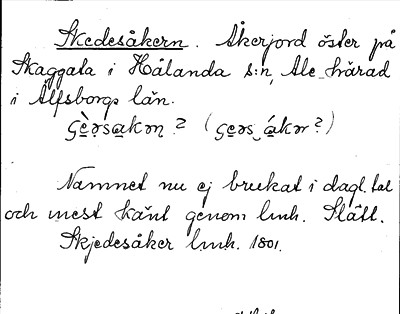 Skedesåkern. Åkerjord öster på
Skaggata i Hålanda s:n, Ale-härad
i Älfsborgs län.
? ( ?)
Namnet nu ej brukat i dagl. tal
och mest känt genom lmh. Slätt.
Skjedesåker lmh. 1801.